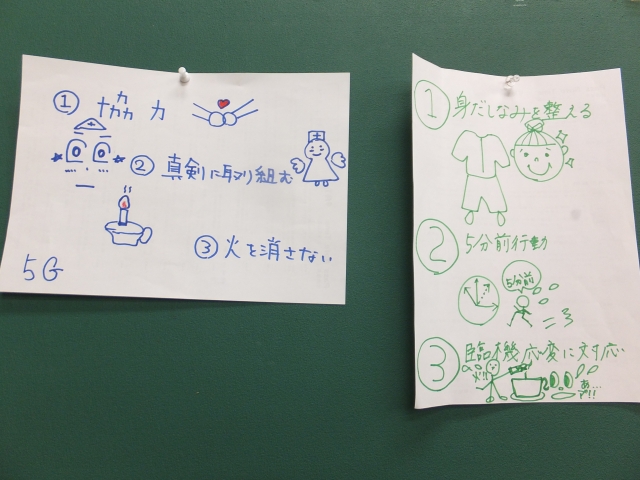 ① 協力
② 真剣に取り組む
③ 火を消さない
5G
① 身だしなみを整える
② 5分前行動
5分前
③ 臨機応変に対応
火!!
あ…